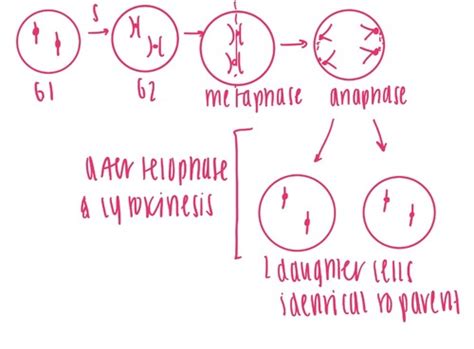 S
G1
G2
metaphase
anaphase
after telophase
& cytokinesis
2 daughter cells
identical to parent